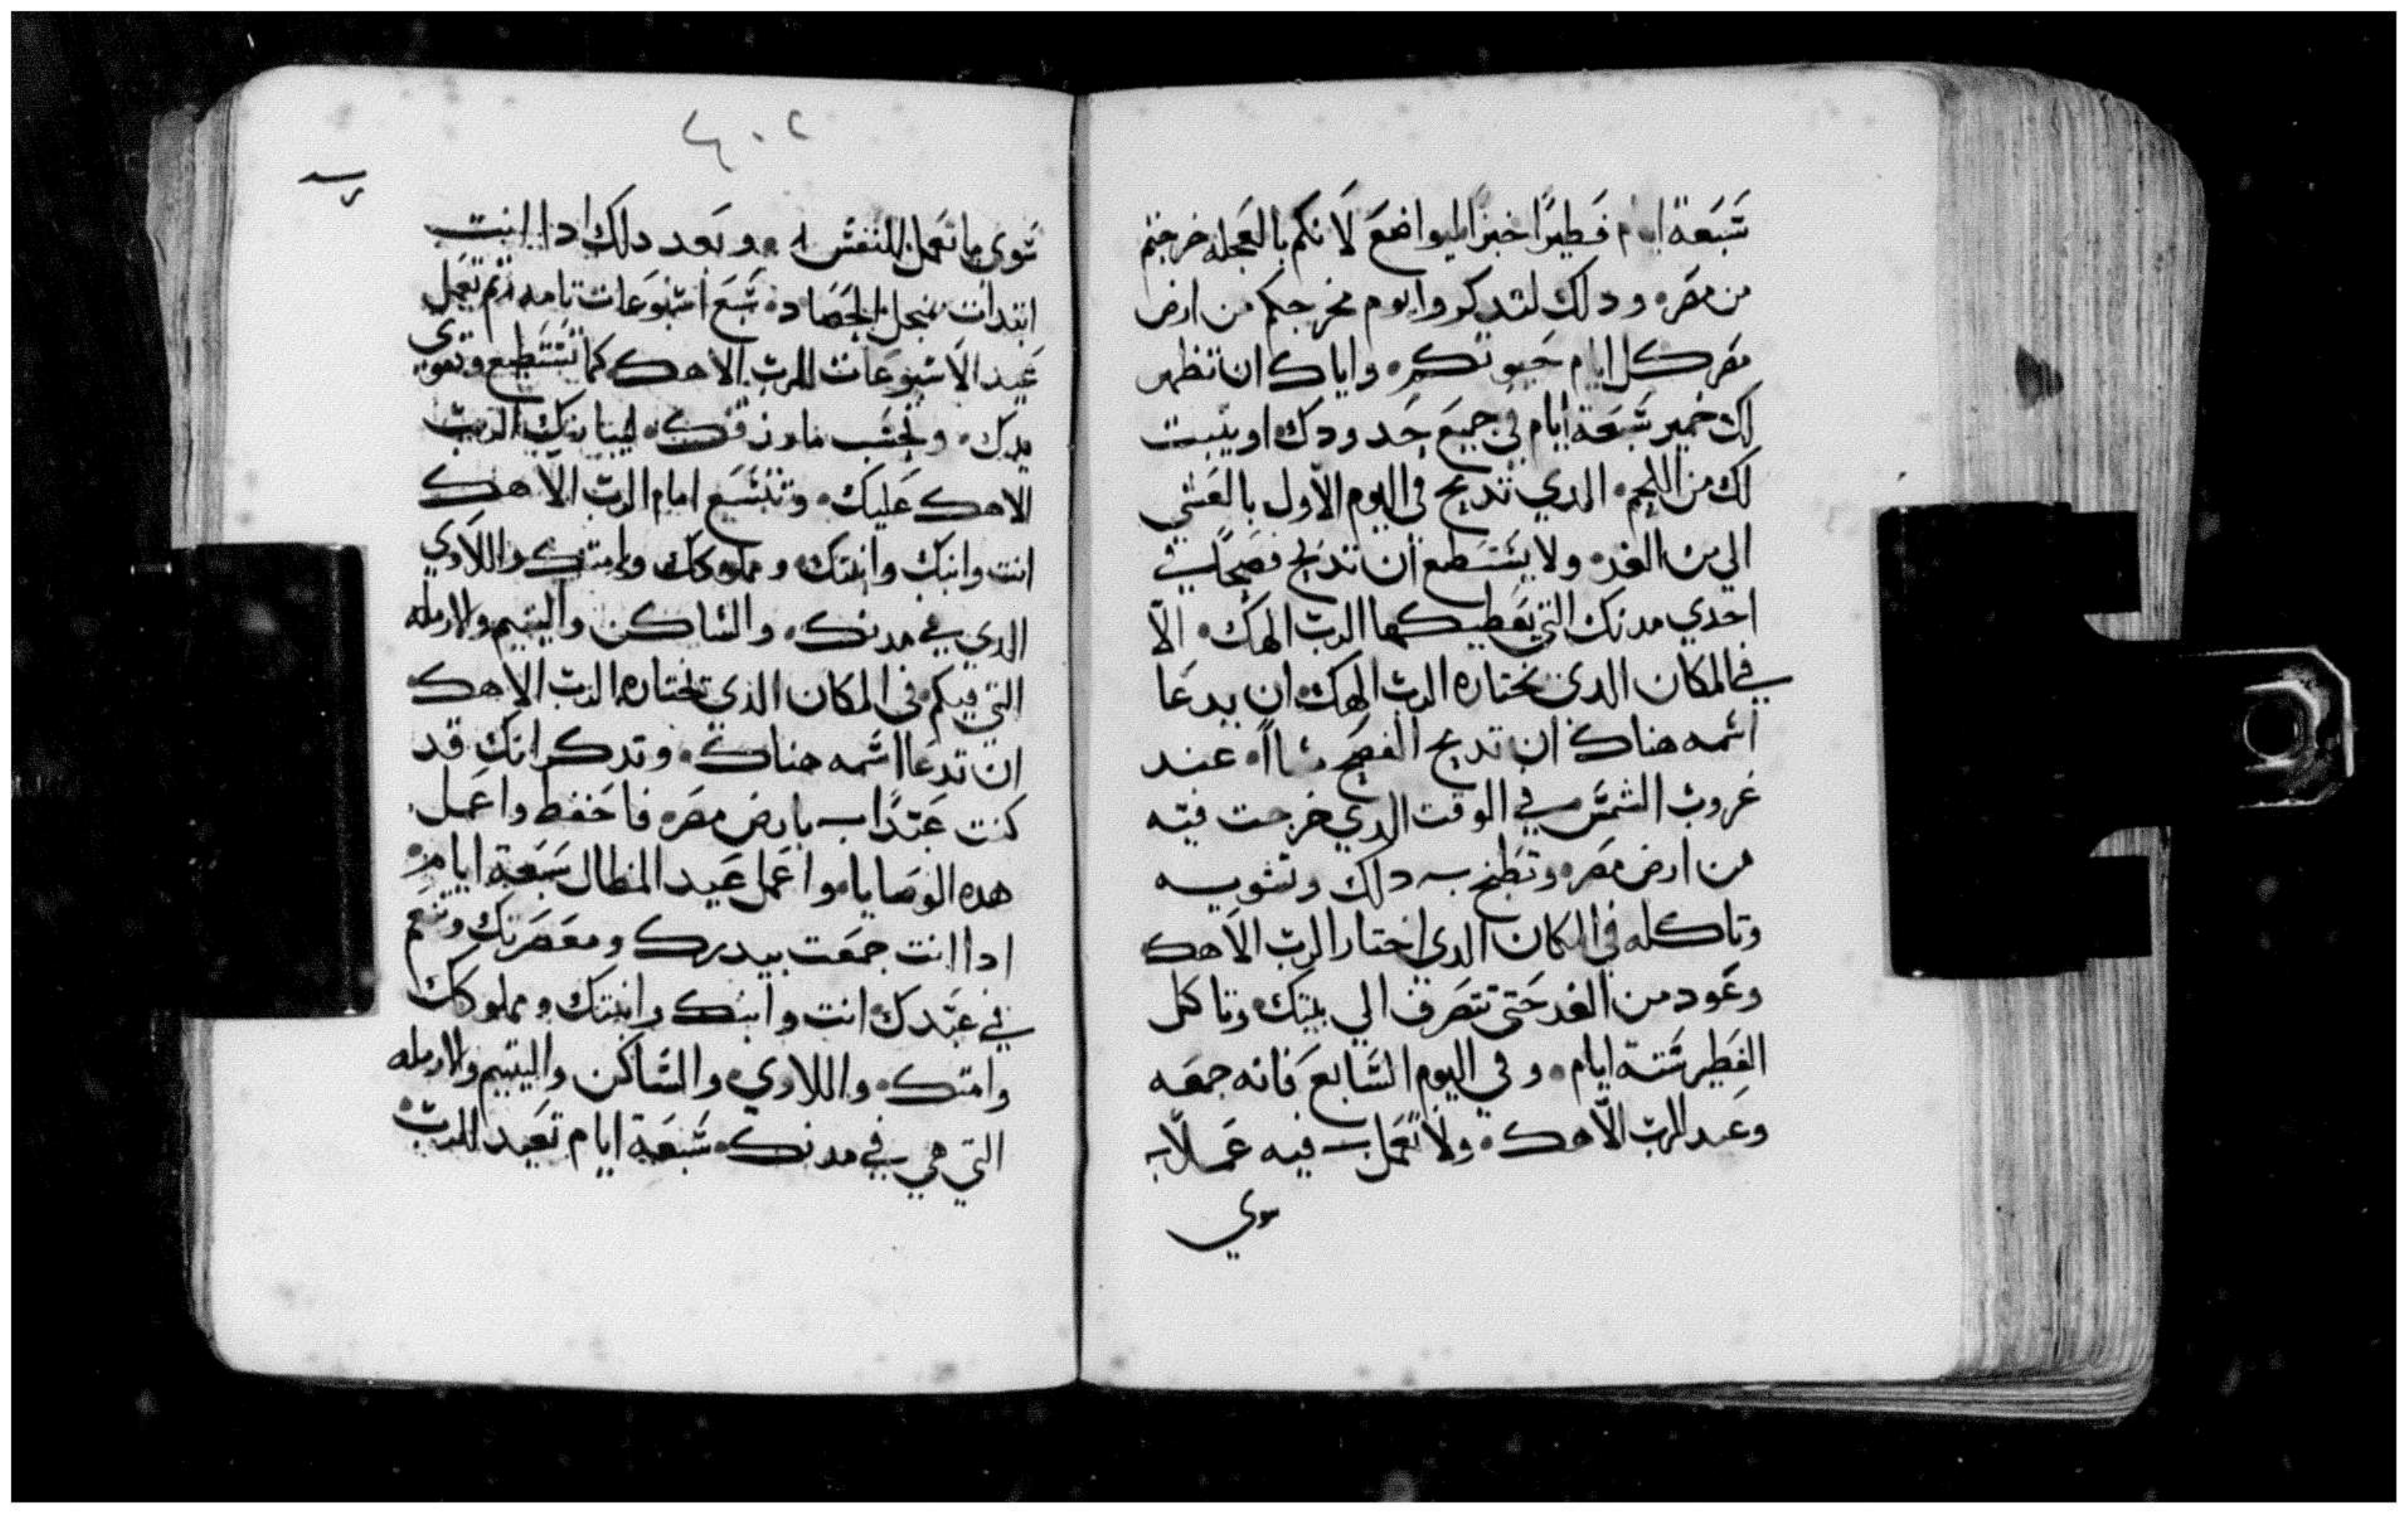 سبعة ايام فطيرًا خبزًا ليواضع لانكم بالعجله خرجتم
من مصر ودلك لتدكروا يوم مخرجكم من ارض
مصر كل ايام حيوتكم واياك ان تظهر
لك خمير سبعة ايام في جميع حدودك او يبيت
لك من اللحم الدي تدبح في اليوم الاول بالعشي
الي من الغد ولا يستطع ان تدبح فصحًا في
احدي مدنك التي يعطيكها الرب الهك الّا
في المكان الدي يختاره الرب الهك ان يدعا
اسمه هناك ان تدبح الفصح مساًا عند
غروب الشمس في الوقت الدي خرجت فيه
من ارض مصر وتطبخ دلك وتشويه
وتاكله في المكان الدي اختار الرب الاهك
وعود من الغد حتى تتصرف الي بيتك وتاكل
الفطير ستة ايام وفي اليوم السابع فانه جمعه
وعيد الرب الاهك ولا تعمل فيه عملًا
سوي
٤٠٢
سوى ما تعمل للنفس وبعد دلك ادا انت
ابتدات منجل الحصاد سبع اسبوعات تامه ثم تعمل
عيد الاسبوعات للرب الاهك كما تستطيع وتقوى
يدك وبحسب ما رزقك ليباركك الرب
الاهك عليك وتتسع امام الرب الاهك
انت وابنك وابنتك ومملوكك وامتك واللاوي
الدي في مدنك والساكن واليتيم والارمله
التي فيكم في المكان الذي يختاره الرب الاهك
ان تدعا اسمه هناك وتدكر انك قد
كنت عبدًا بارض مصر فاحفظ واعمل
هده الوصايا واعمل عيد المظال سبعة ايام
ادا انت جمعت بيدرك ومعصرتك وتنعم
في عيدك انت وابنك وابنتك ومملوكك
وامتك واللاوي والساكن واليتيم والارمله
التي هي في مدنك سبعة ايام تعيد للرب